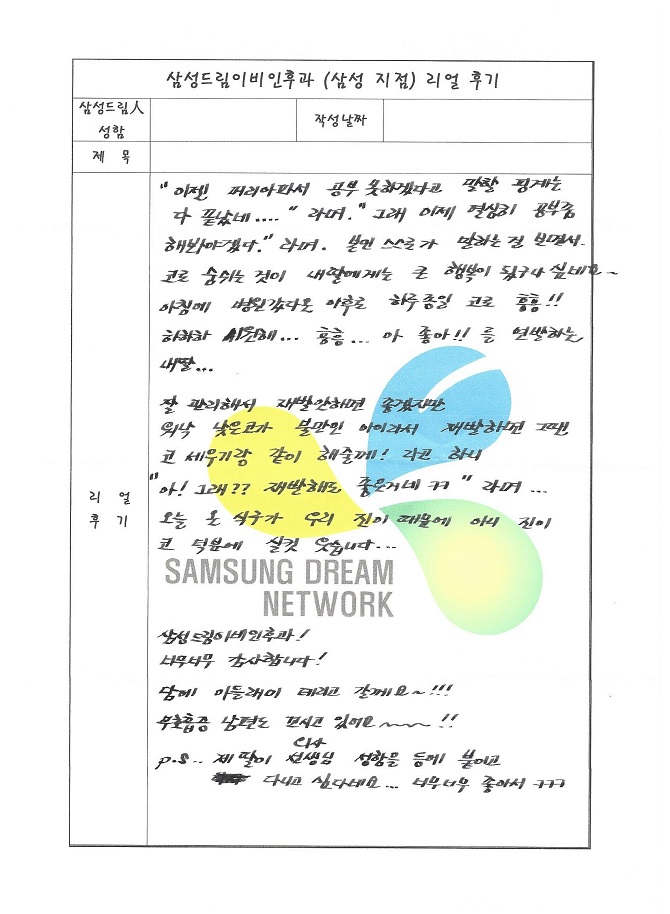 삼성드림이비인후과 (삼성 지점) 리얼 후기
삼성드림人
성함
작성날짜
제 목
리 얼
후 기
"이젠 머리아파서 공부 못하겠다고 말할 핑게는
다 끝났네...." 라며. "그래 이제 열심히 공부좀
해봐야겠다." 라며. 본인 스스로가 말하는걸 보면서.
코로 숨쉬는 것이 내딸에게는 큰 행복이 됬구나 싶네요~
아침에 병원갔다온 이후로 하루종일 코로 흥흥!!
하하하 시원해... 흥흥... 아 좋아!! 를 연발하는
내딸...
잘 관리해서 재발안하면 좋겠지만
워낙 낮은코가 불만인 아이라서 재발하면 그땐
코 세우기랑 같이 해줄께! 라고 하니
"아! 그래?? 재발해도 좋은거네 ㅋㅋ" 라며...
오늘 온 식구가 우리 진이 때문에 아니 진이
코 덕분에 실컷 웃습니다...
SAMSUNG DREAM
NETWORK
삼성드림이비인후과!
너무너무 감사합니다!
담에 아들래미 데리고 갈께요~!!!
무호흡증 남편도 모시고 있어요~~~ !!
p.s.. 제 딸이 의사 선생님 성함을 등에 붙이고
다니고 싶다네요... 너무너무 좋아서 ㅋㅋㅋ